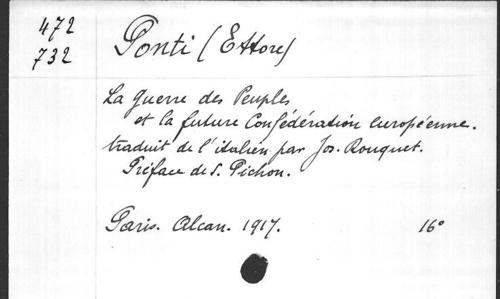 472
732
Ponti (Ettore)
La guerre des Peuples
et la future Confédération européenne.
traduit de l'italien par Jos. Rouquet.
Préface de S. Pichon.
Paris. Alcan. 1917. 16°